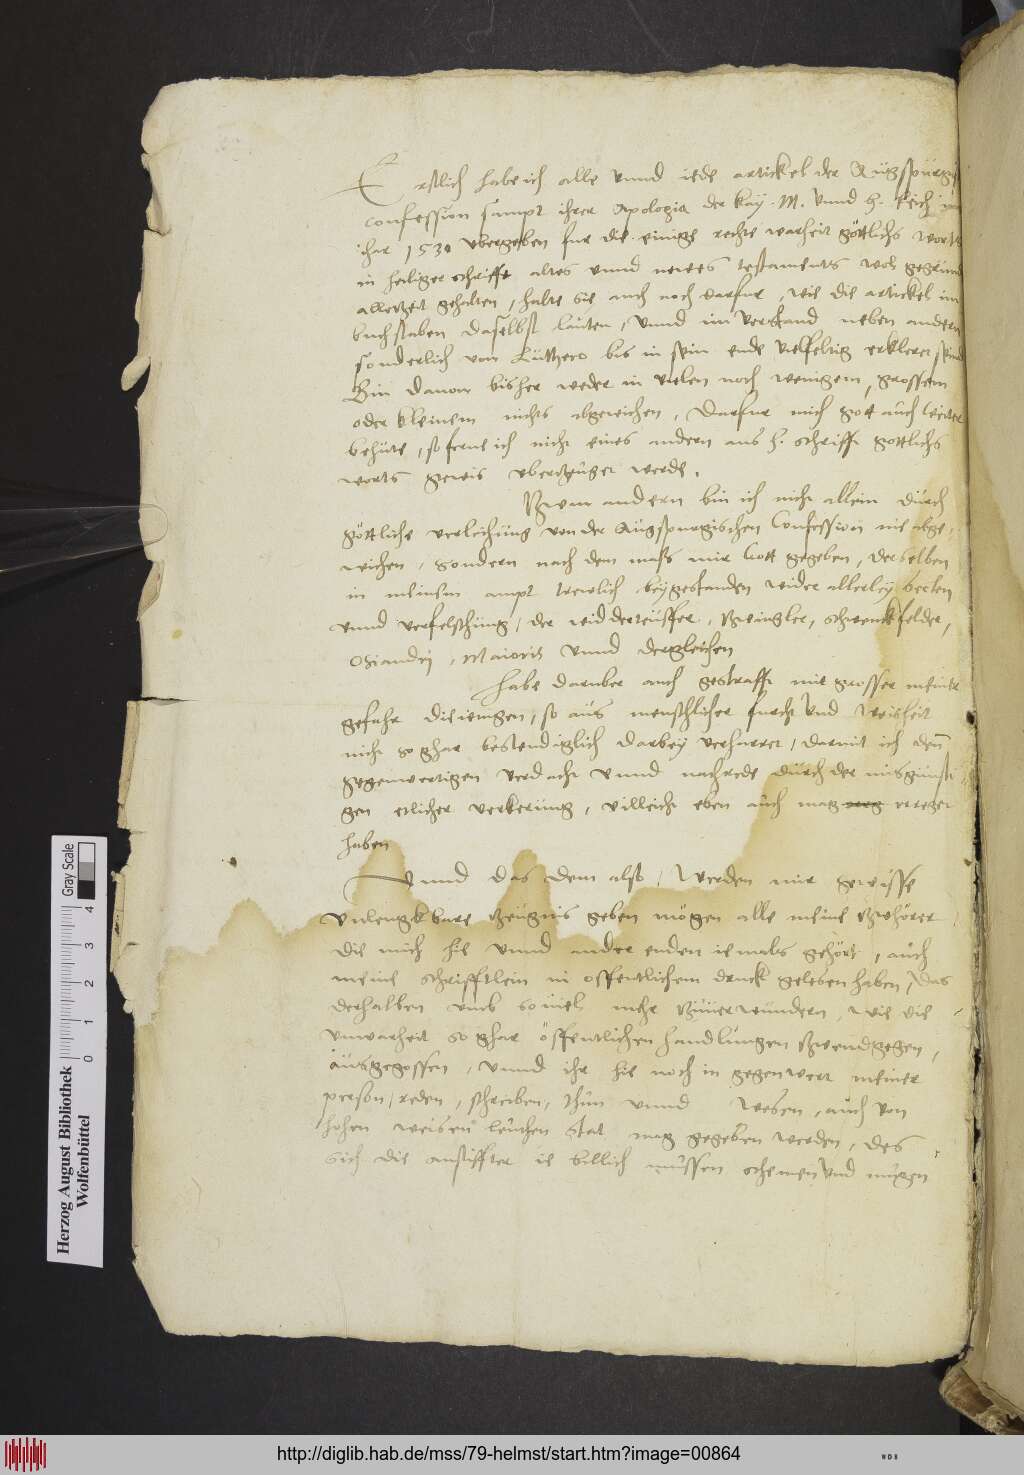 Erstlich habe ich alle vnnd iede artickel der Augspurgi
confession sampt ihrer Apologia der Kay. M. vnnd h. Reich im
ihar 1530 vbergeben fur die einige rechte warheit göttlichs worts
in heiliger schrifft altes vnnd newes testaments wol gegrund
alletzeit gehalten, halte sie auch noch darfur, wie die artickel im
buchstaben daselbst lauten, vnnd im verstand neben andern
sonderlich von Luthero bis in sein ende vielfeltig erkleret seind
Bin dauon bisher weder in vielen noch wenigem, grossem
oder kleinem nichts abgewichen, Darfur mich gott auch weiter
behüte, so ferne ich nicht eines andern aus h. schrifft gottlichs
worts gewis vberzeuget werde.
Zwm andern bin ich nicht allein durch
göttliche verleihung von der Augspurgischen Confession nie abge-
wichen, sondern nach dem mass mir Gott gegeben, derselben
in meinem ampt trewlich beygestanden wider allerley secten
vnnd verfelschung, der widderteuffer, Zwingler, schwenckfelder,
Osiandrj, Maioris vnnd dergleichen
Habe daruber auch gestrafft mit grosser meiner
gefahr dieienigen, so aus menschlicher furcht vnd weisheit
nicht so ghar bestendiglich darbey verharret, damit ich den
gegenwertigen verdacht vnnd nachrede durch der misgunsti
gen etlicher verkerung, villeicht eben auch mag erreget
haben
Vnnd das dem also, werden mir gewisse
vnlengkbare zeugnis geben mögen alle meine zwhörer
die mich hie vnnd ander enden iemals gehört, auch
meine schrifftlein in offentlichem druck gelesen haben, Das
derhalben vmb souiel mehr zuuerwundern, wie die
vnwarheit so ghar öffentlichen handlungen zwendgegen,
ausgegossen, vnnd ihr hie noch in gegenwert meiner
person, reden, schreiben, thun vnnd wesen, auch von
hohen weisen leuthen stat mag gegeben werden, Des
sich die anstiffter ie billich müssen schemen vnd mügen
Herzog August Bibliothek
Wolfenbüttel
0 1 2 3 4
Gray Scale
http://diglib.hab.de/mss/79-helmst/start.htm?image=00864
WDB